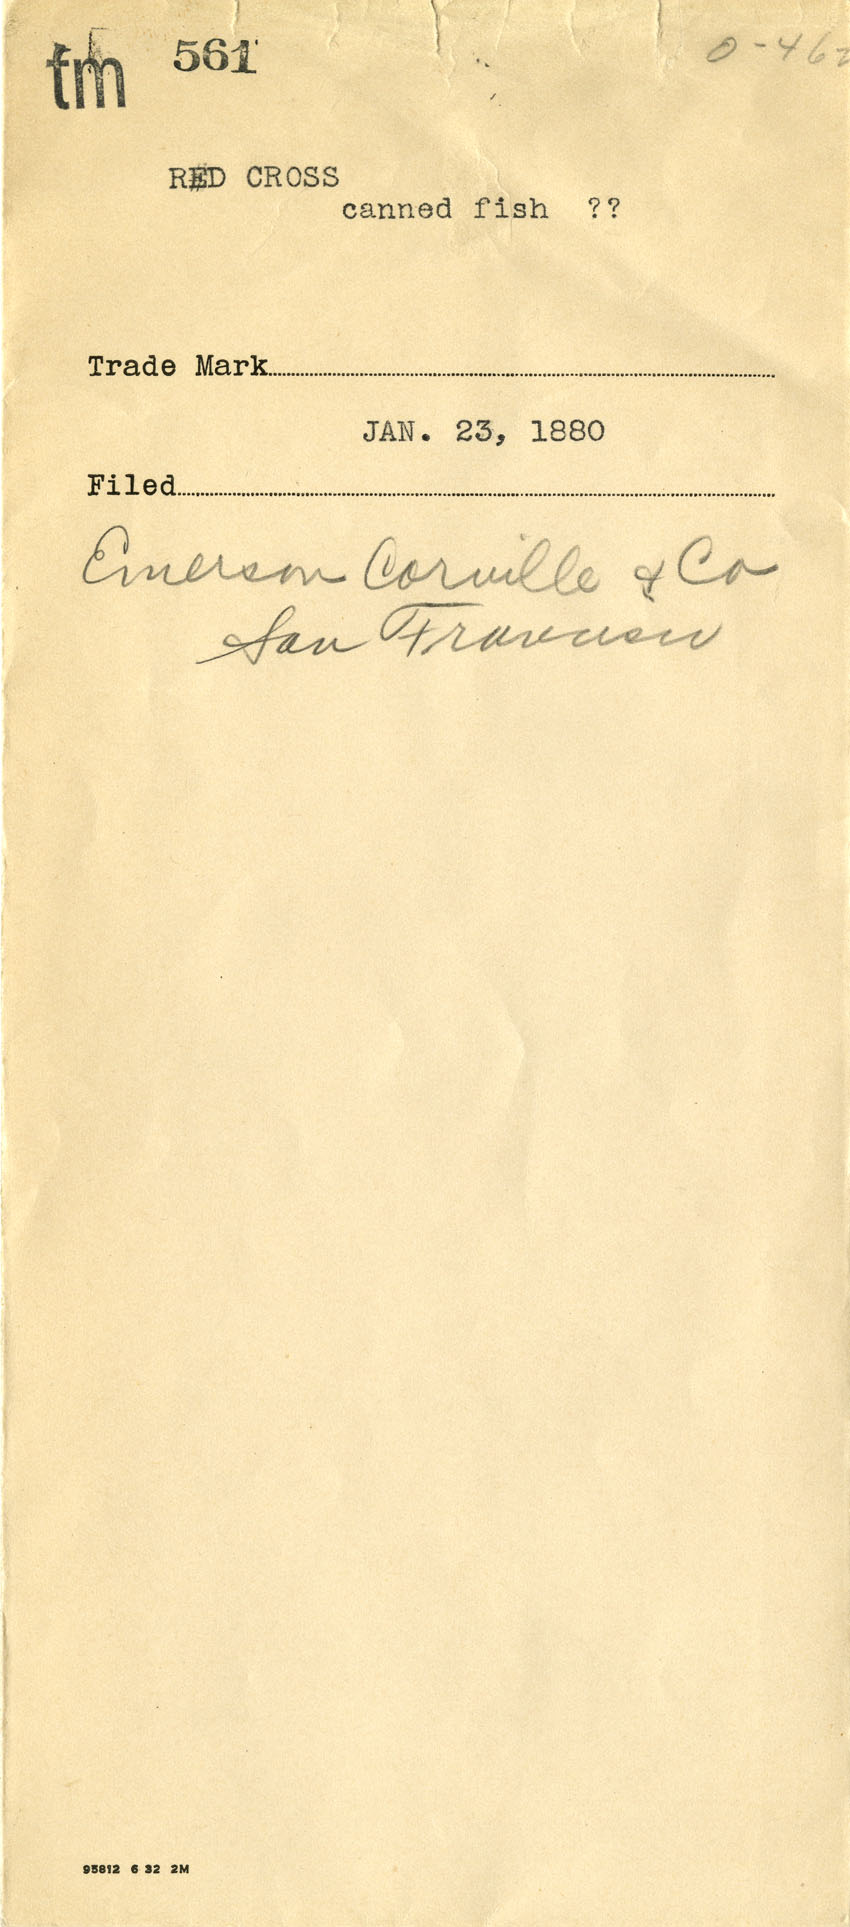 tm 561 0-46
RED CROSS
canned fish ??
Trade Mark
JAN. 23, 1880
Filed
Emerson Corville & Co
San Francisco
95812 6 32 2M